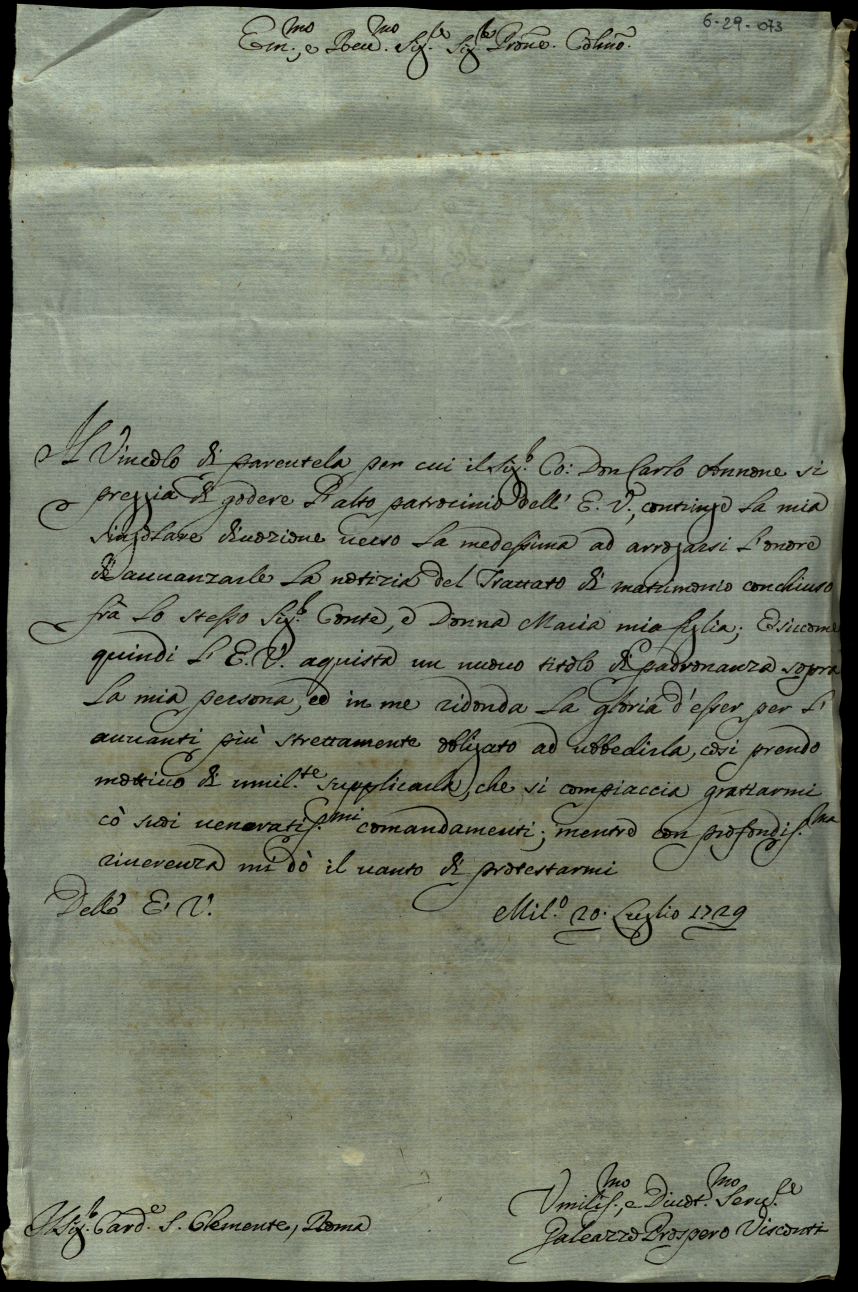 6-29-073
Em.mo, e Reu.mo Sig.re Sig.re Prōne Colmō.
Il Vincolo di parentela per cui il Sig.r Co: Don Carlo Annone si
preggia di godere l'alto patrocinio dell' E. V., continge la mia
singolare diuozione uerso la medessima ad arrogarsi l'onore
di auuanzarle la notizia del Trattato di matrimonio conchiuso
frà lo stesso Sig.r Conte, e Donna Maria mia figlia; E siccome
quindi l' E. V. aquista un nuouo titolo di padronanza sopra
la mia persona, ed in me ridonda la gloria d'esser per l'
auuanti più strettamente obligato ad ubbedirla, così prendo
mottiuo di umil.te supplicarla, che si compiaccia gratiarmi
cò suoi uneratis.mi comandamenti; mentre con profondis.ma
riuerenza mi dò il uanto di protestarmi
Dell' E. V.
Mil.o 20. Luglio 1729
Umilis.mo, e Diuot.mo Seru.re
Il Sig.r Card.e S. Clemente, Roma
Galeazzo Prospero Visconti